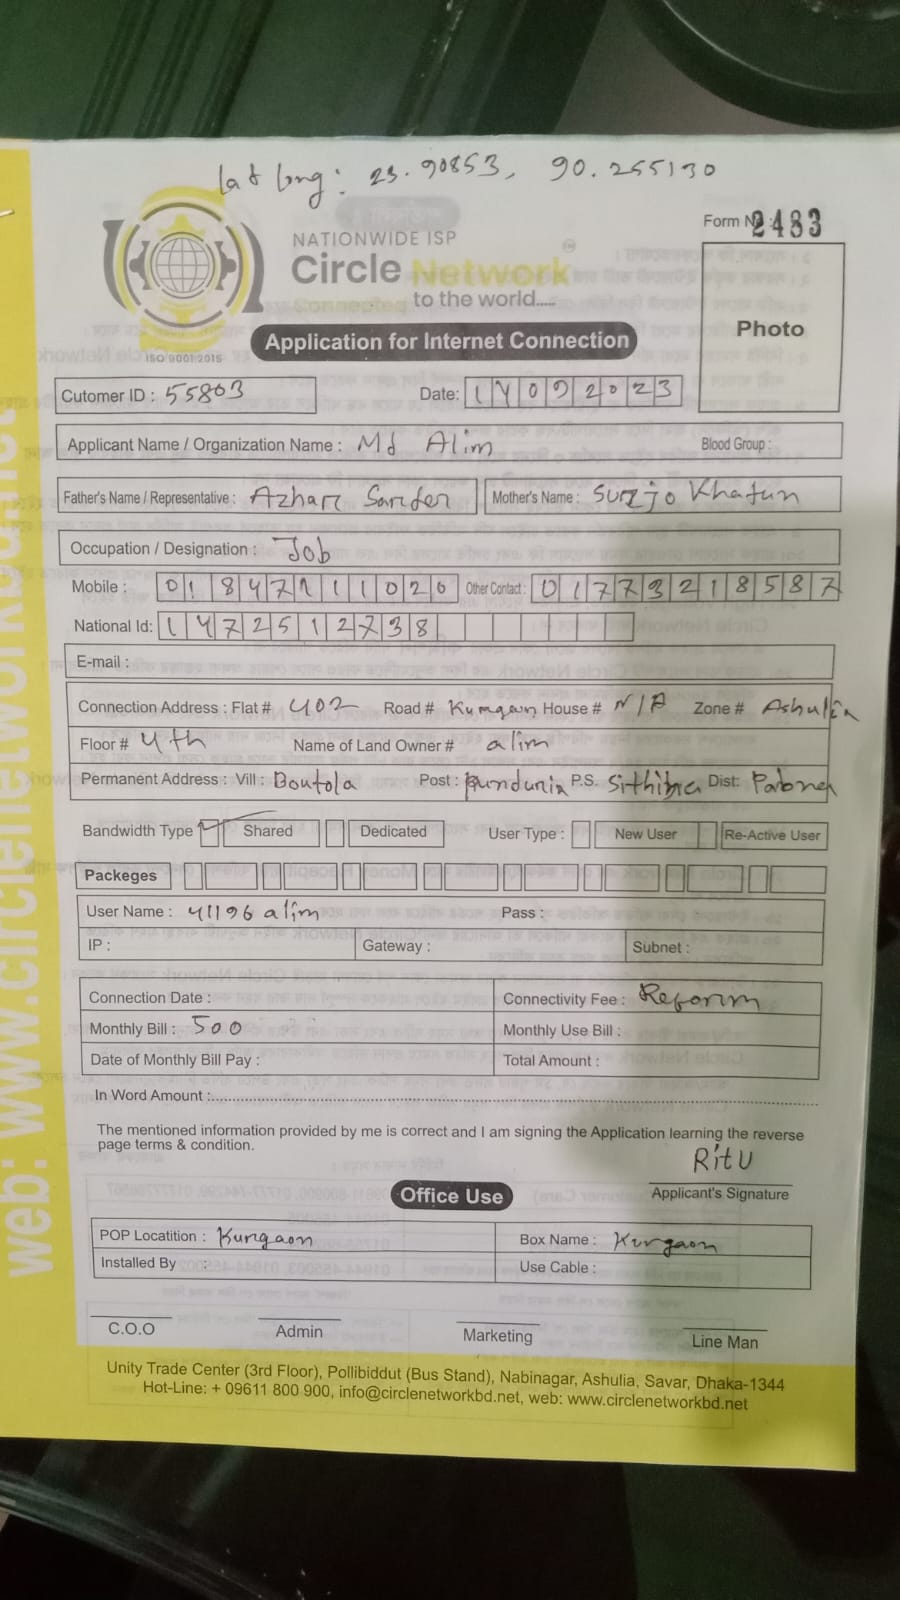 Lat long: 23.90853, 90.255130
Form No: 2483
NATIONWIDE ISP
Circle Network
Connected to the world.....
ISO 9001:2015
Application for Internet Connection
Photo
Cutomer ID : 55803 Date: 14092023
Applicant Name / Organization Name : Md Alim Blood Group :
Father's Name / Representative : Azhar Sarder Mother's Name : Surjo Khatun
Occupation / Designation : Job
Mobile : Other Contact : 01773218587
National Id: 1472512738
E-mail :
Connection Address : Flat # 402 Road # Kumgaon House # N/A Zone # Ashulia
Floor # 4th Name of Land Owner # alim
Permanent Address : Vill : Boutola Post : P.S. Dist: Pabna
Bandwidth Type Shared Dedicated User Type : New User Re-Active User
Packeges
User Name : 41196 alim Pass :
IP : Gateway : Subnet :
Connection Date : Connectivity Fee : Reform
Monthly Bill : 500 Monthly Use Bill :
Date of Monthly Bill Pay : Total Amount :
In Word Amount :
The mentioned information provided by me is correct and I am signing the Application learning the reverse
page terms & condition.
RitU
Applicant's Signature
Office Use
POP Locatition : Kurgaon Box Name : Kurgaon
Installed By : Use Cable :
C.O.O Admin Marketing Line Man
Unity Trade Center (3rd Floor), Pollibiddut (Bus Stand), Nabinagar, Ashulia, Savar, Dhaka-1344
Hot-Line: + 09611 800 900, info@circlenetworkbd.net, web: www.circlenetworkbd.net
web: www.circlenetworkbd.net